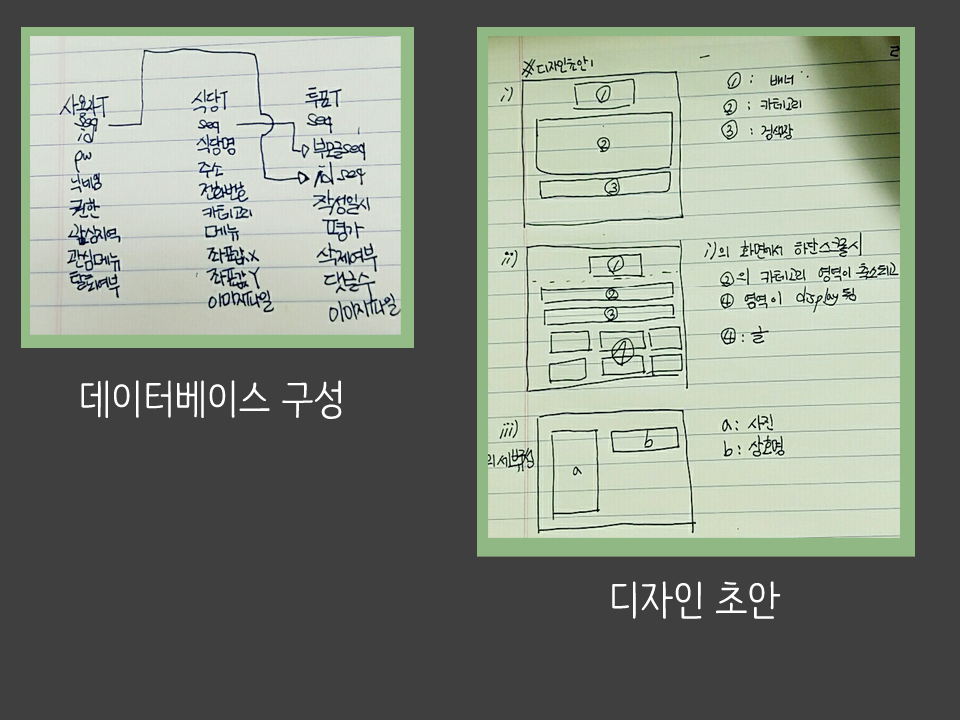 사용자T
seq
id
pw
닉네임
권한
관심지역
관심메뉴
탈퇴여부
식당T
seq
식당명
주소
전화번호
카테고리
메뉴
좌표값X
좌표값Y
이미지파일
투표T
seq
부모글seq
seq
작성일시
평가
삭제여부
댓글수
이미지파일
데이터베이스 구성
※디자인초안1
i)
①
②
③
①: 배너
②: 카테고리
③: 검색창
ii)
①
②
③
④
i)의 화면에서 하단스크롤시
②의 카테고리 영역이 축소되고
④ 영역이 display됨
④: 글
iii)
a
b
a: 사진
b: 상호명
디자인 초안